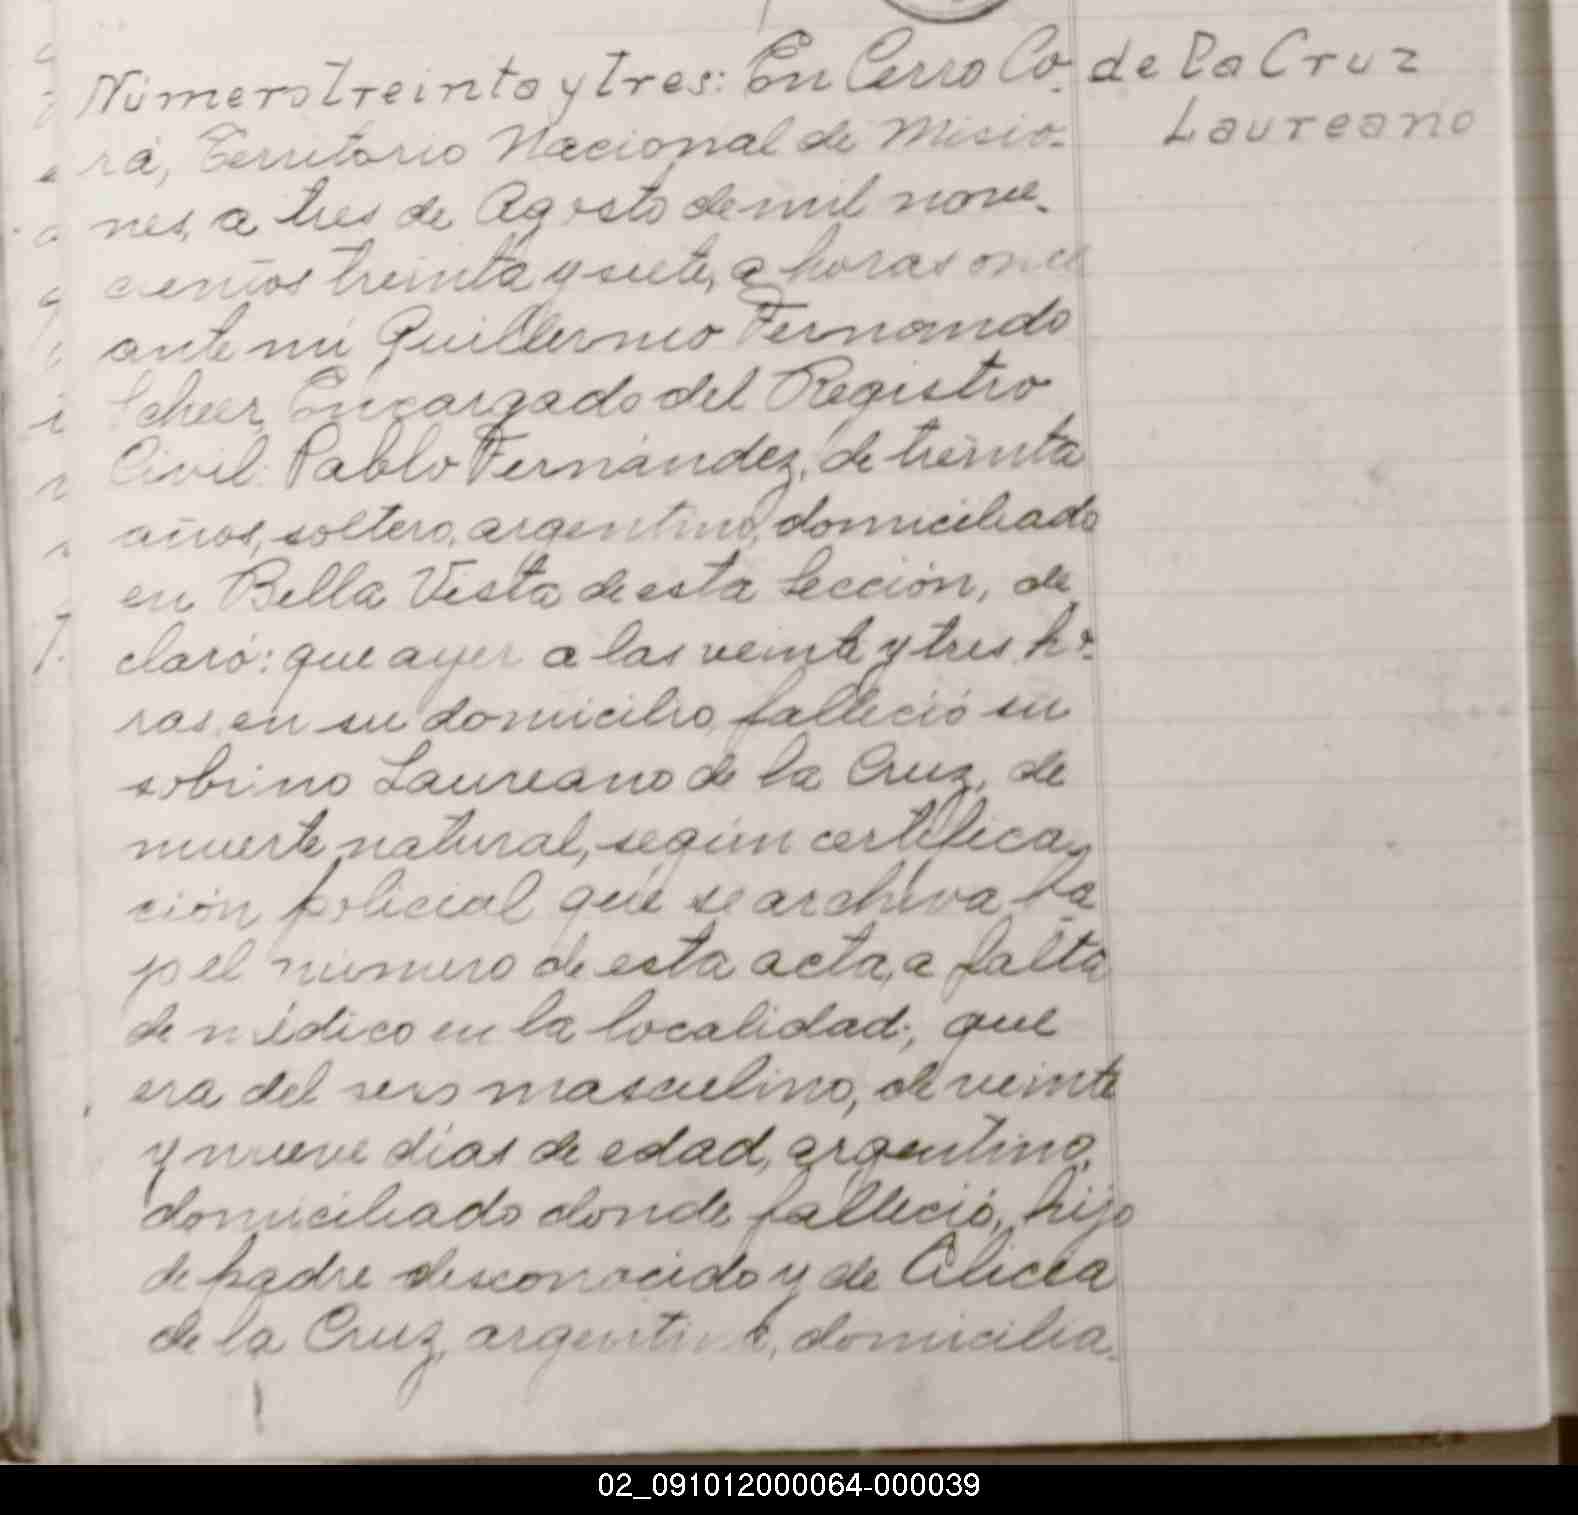 Número treinta y tres: En Cerro Co-
rá, Territorio Nacional de Misio-
nes, a tres de Agosto de mil nove-
cientos treinta y siete, a horas once
ante mi Guillermo Fernando
Scheer, Encargado del Registro
Civil: Pablo Fernández, de treinta
años, soltero, argentino, domiciliado
en Bella Vista de esta Sección, de
claró: que ayer a las veinte y tres ho-
ras, en su domicilio, falleció su
sobrino Laureano de la Cruz, de
muerte natural, según certifica-
ción policial que se archiva ba-
jo el número de esta acta, a falta
de médico en la localidad; que
era del sexo masculino, de veinte
y nueve días de edad, argentino,
domiciliado donde falleció, hijo
de padre desconocido y de Alicia
de la Cruz, argentina, domicilia-
de la Cruz
Laureano
02_091012000064-000039